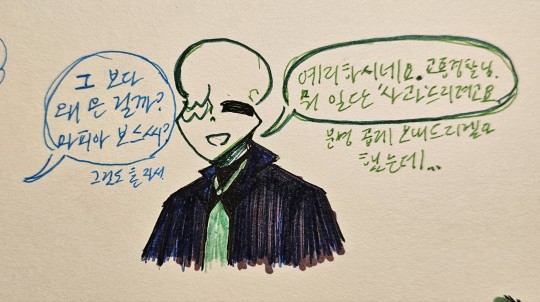 그 보다
왜 온 걸까?
마피아 보스씨?
그것도 혼자서
예리하시네요. 교통경찰님.
뭐 일단 '사과'드리려고요
분명 곱게 보내드리겠다
했는데...